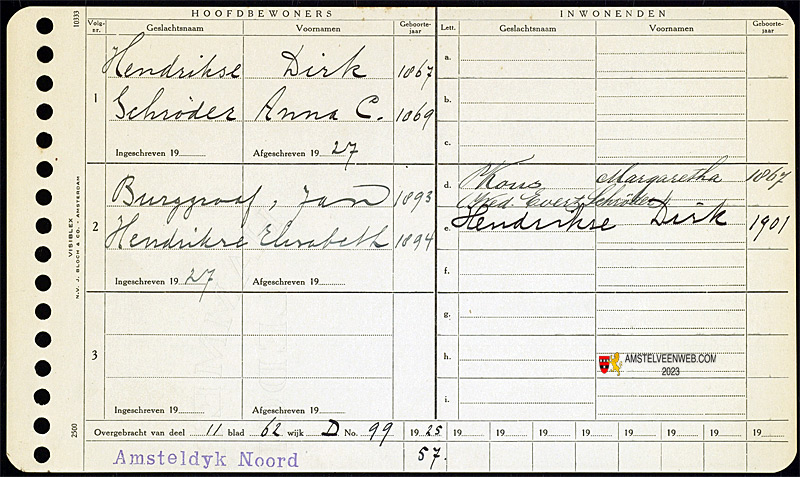 HOOFDBEWONERS
INWONENDEN
Volg-nr. Geslachtsnaam Voornamen Geboorte-jaar Lett. Geslachtsnaam Voornamen Geboorte-jaar
10333
1
Hendrikse Dirk 1867
Schröder Anna C. 1869
Ingeschreven 19 Afgeschreven 19 27
a.
b.
c.
2
Burggraaf, Jan 1893
Hendrikse Elisabeth 1894
Ingeschreven 19 27 Afgeschreven 19
d. Kous Margaretha 1867
Wed. Evert Schröder
e. Hendrikse Dirk 1901
f.
3
Ingeschreven 19 Afgeschreven 19
g.
h.
i.
AMSTELVEENWEB.COM
2023
VISIBLEX
N.V. J. BLOCH & CO. - AMSTERDAM
2500
Overgebracht van deel 11 blad 62 wijk D No. 99 19 25 19 19 19 19 19 19 19 19
Amsteldyk Noord 57.